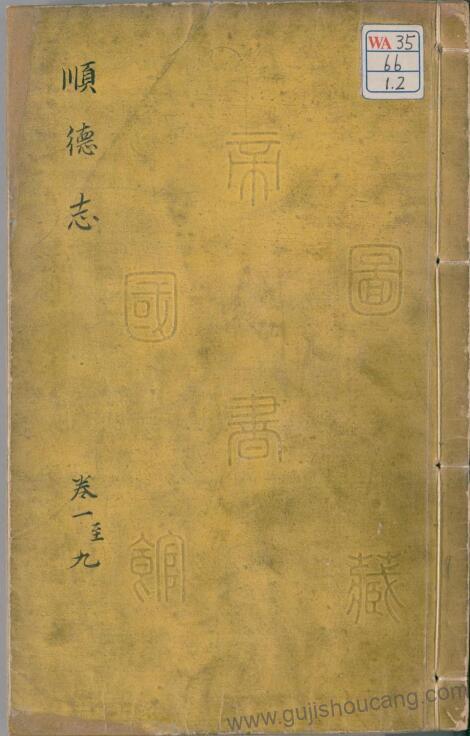 順德志
卷一至九
WA 35
66
1.2
帝國圖書館藏
www.gujishoucang.com